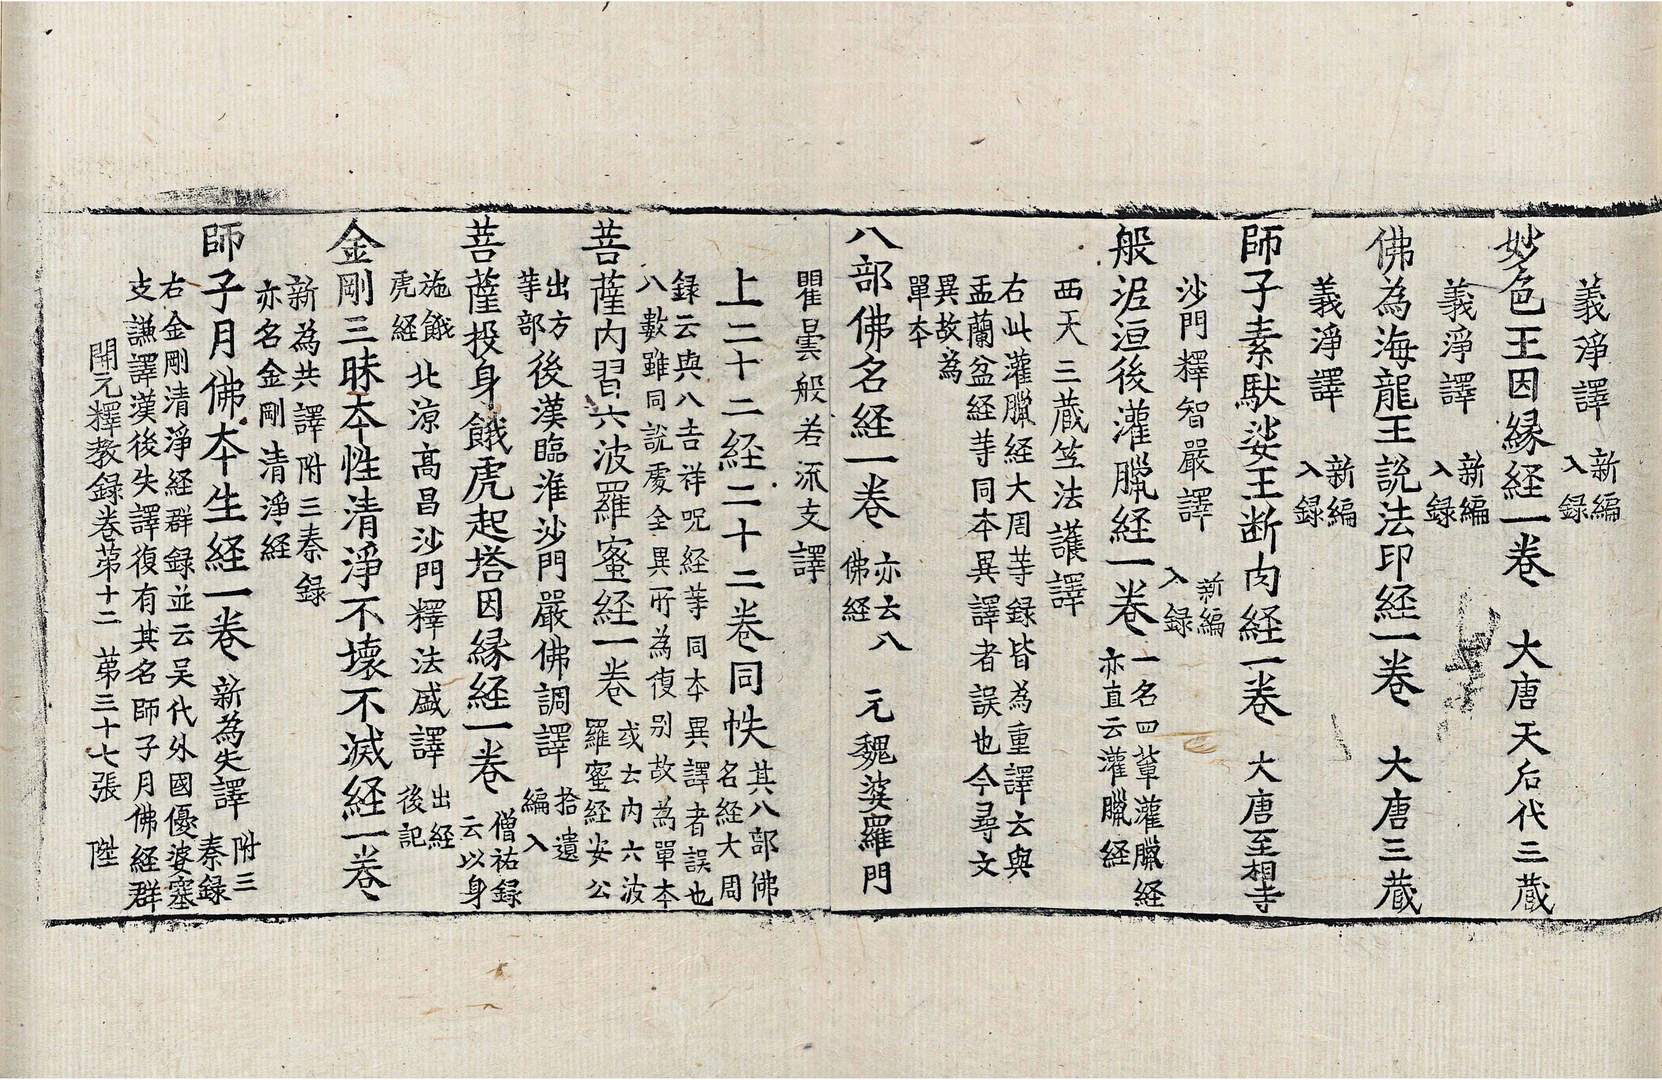 義淨譯 新編入録
妙色王因縁経一卷 大唐天后代三藏
義淨譯 新編入録
佛為海龍王説法印経一卷 大唐三藏
義淨譯 新編入録
師子素馱娑王断肉経一卷 大唐至相寺
沙門釋智嚴譯 新編入録
般泥洹後灌臘経一卷 一名四輩灌臘経亦直云灌臘経
西天三蔵竺法護譯
右此灌臘経大周䓁録皆為重譯云與
盂蘭盆経䓁同本異譯者誤也今尋文
異故為
單本
八部佛名経一卷 亦云八佛経 元魏婆羅門
瞿曇般若流支譯
上二十二経二十二卷同帙 其八部佛名経大周
録云與八吉祥呪経䓁同本異譯者誤也
八數雖同説處全異所為復别故為單本
菩薩内習六波羅蜜経一卷 或云内六波羅蜜経安公
出方䓁部 後漢臨淮沙門嚴佛調譯 拾遺編入
菩薩投身餓虎起塔因縁経一卷 僧祐録云以身
施餓虎経 北涼高昌沙門釋法盛譯 出経後記
金剛三昧本性清淨不壞不滅経一卷
新為失譯附三秦録
亦名金剛清淨経
師子月佛本生経一卷 新為失譯 附三秦録
右金剛清淨経群録並云吴代外國優婆塞
支謙譯漢後失譯復有其名師子月佛経群
開元釋教録卷第十二 第三十七張 陛